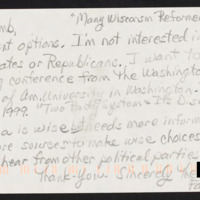 mb,
"Many Wisconsin Reformed
nt options. I'm not interested in
ates or Republicans. I want to
g conference from the Washington
of Am. University in Washington.
1999. "Two Party System & Its Dis
a is wise but needs more inform
ore sources to make wise choices
hear from other political parties
Thank-you. Sincerely the
Fa